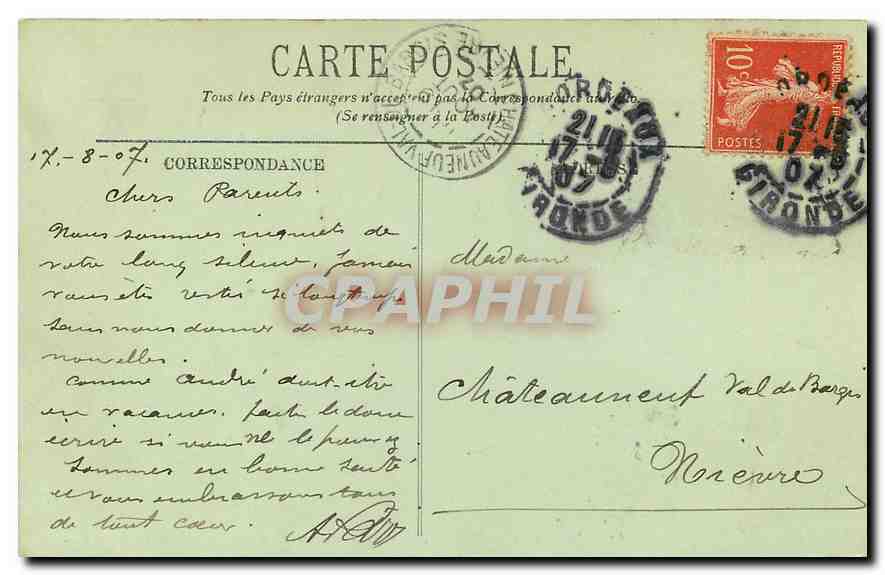 CARTE POSTALE
Tous les Pays étrangers n'acceptent pas la Correspondance au recto.
(Se renseigner à la Poste)
17-8-07.
CORRESPONDANCE
Chers Parents.
Nous sommes inquiets de
votre long silence. Jamais
vous êtes restés si longtemps
sans nous donner de vos
nouvelles.
Comme André doit-être
en vacances, faites le donc
écrire si vous ne le pouvez
Sommes en bonne santé
et vous embrassons tous
de tout cœur.
Madame
Châteauneuf Val de Bargis
Nièvre
BORDEAUX
21 15
17 - 8
07
GIRONDE
BORDEAUX
21 15
17 - 8
07
GIRONDE
CHATEAUNEUF-VAL-DE-BARGIS
REPUBLIQUE FRANÇAISE
10c
POSTES
CPAPHIL